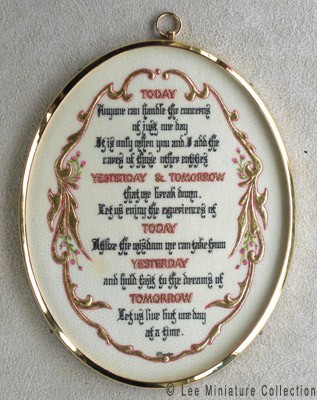 TODAY
Anyone can handle the concerns
of just one day
It is only when you and I add the
cares of those other entities
YESTERDAY & TOMORROW
that we break down.
Let us enjoy the experiences of
TODAY
Utilize the wisdom we can take from
YESTERDAY
and hold fast to the dreams of
TOMORROW
Let us live but one day
at a time.
© Lee Miniature Collection